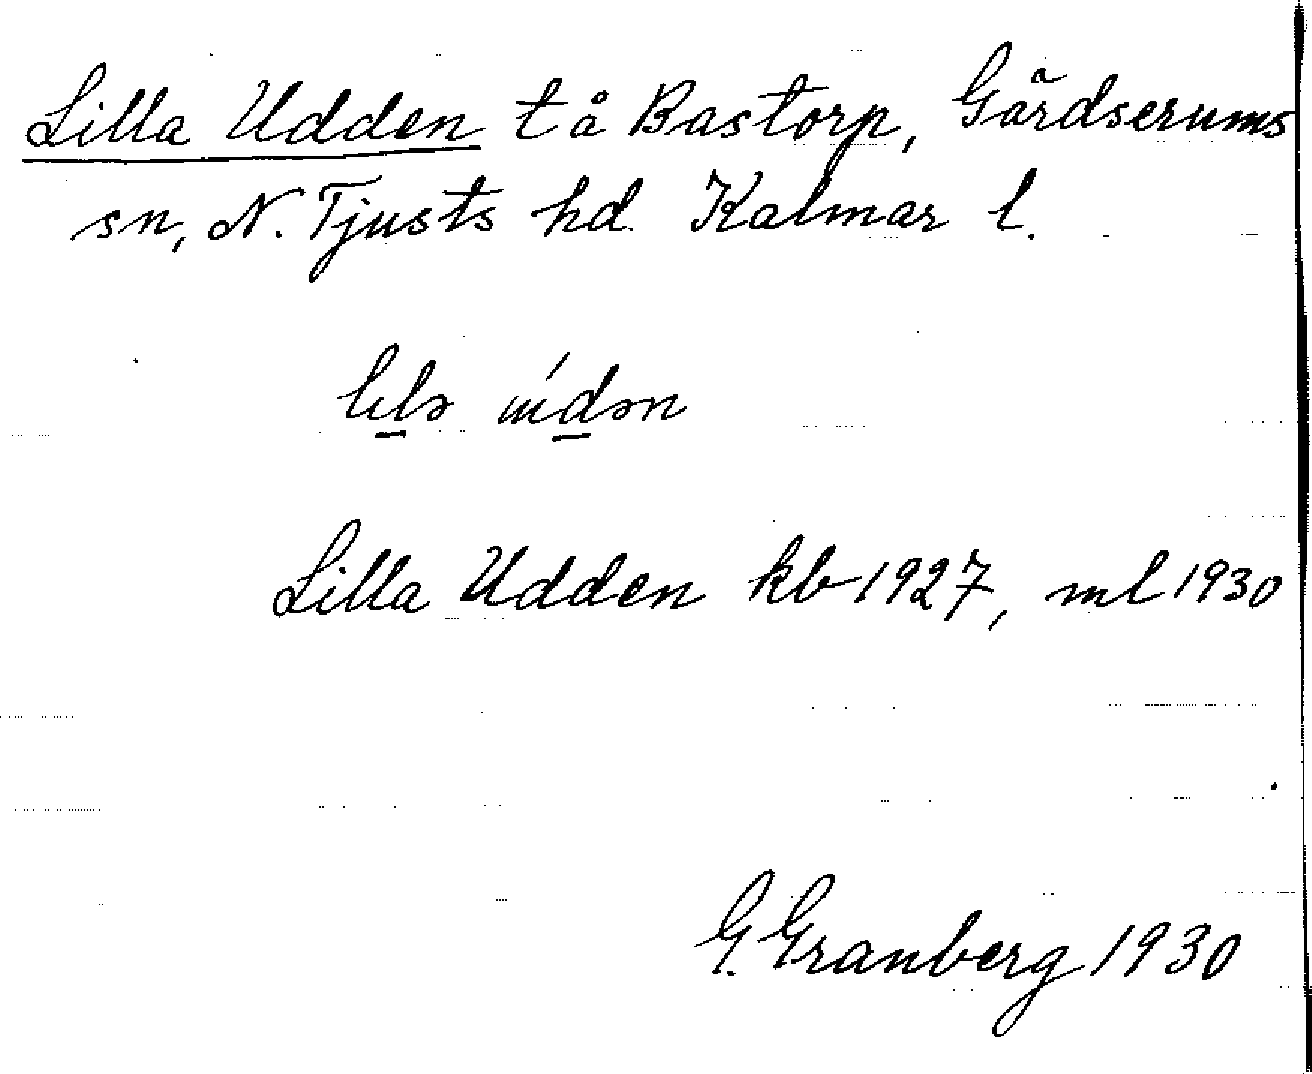 Lilla Udden t å Bastorp, Gärdserums
sn, N. Tjusts hd. Kalmar l.
Lilla Udden kb 1927, ml 1930
G. Granberg 1930